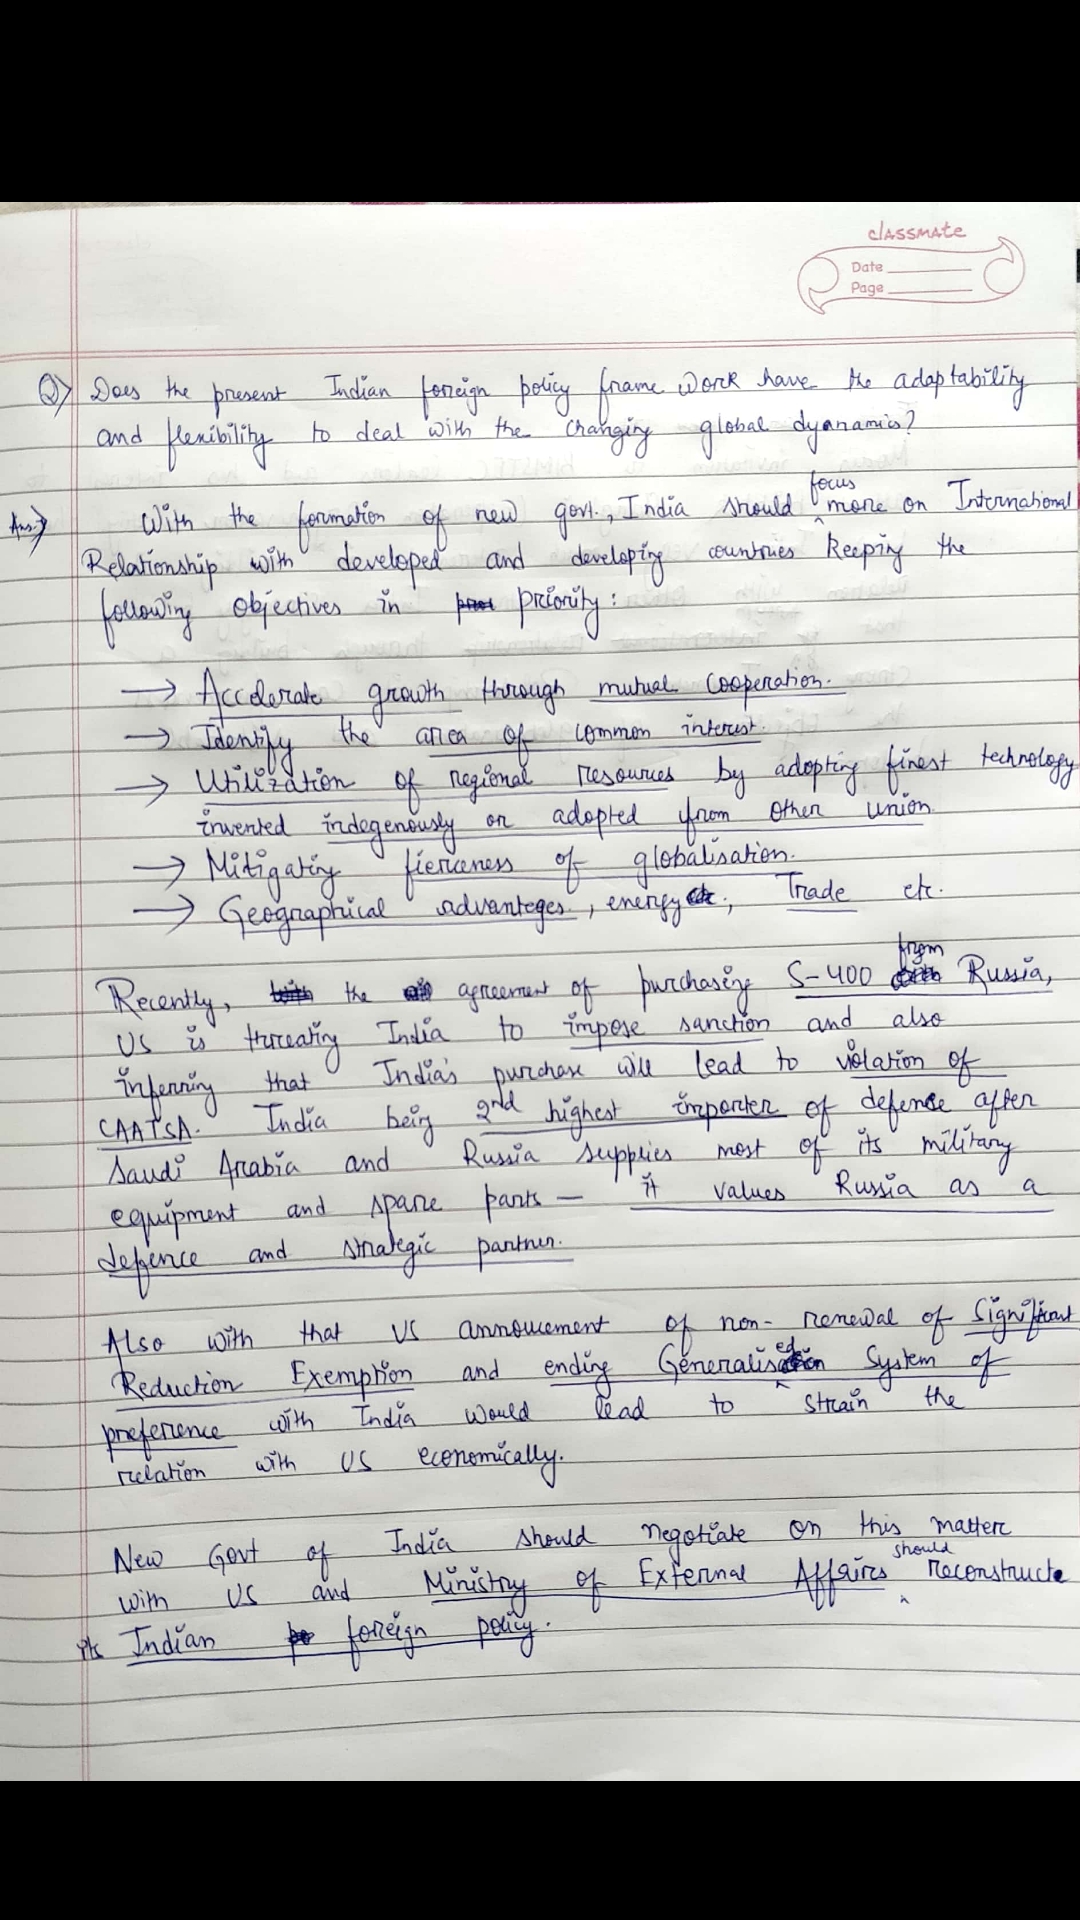 classmate
Date
Page
Q) Does the present Indian foreign policy frame work have the adaptability
and flexibility to deal with the changing global dyanamics?
Ans:→ With the formation of new govt., India should focus more on International
Relationship with developed and developing countries keeping the
following objectives in priority:
→ Accelerate growth through mutual cooperation.
→ Identify the area of common interest.
→ Utilization of regional resources by adopting finest technology
invented indegenously or adopted from other union
→ Mitigating fierceness of globalisation.
→ Geographical advanteges, energy, Trade etc.
Recently, the agreement of purchasing S-400 from Russia,
US is threating India to impose sanction and also
inferring that India's purchase will lead to violation of
CAATSA. India being 2nd highest importer of defence after
Saudi Arabia and Russia supplies most of its military
equipment and spare parts — it values Russia as a
defence and strategic partner.
Also with that US annoucement of non-renewal of Significant
Reduction Exemption and ending Generalised System of
preference with India would lead to strain the
relation with US economically.
New Govt of India should negotiate on this matter
with US and Ministry of External Affairs should reconstruct
its Indian foreign policy.